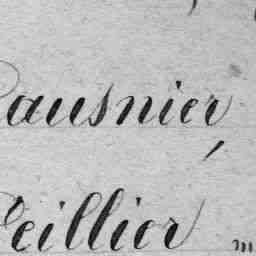 ausnier,
eillier